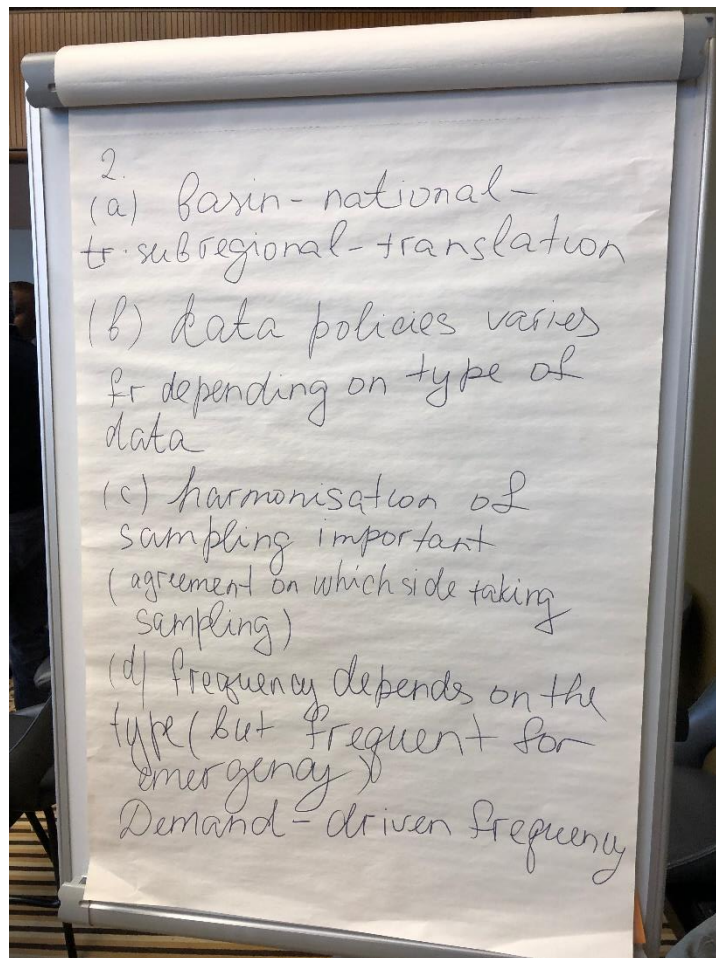 2.
(a) basin-national-
tr.subregional-translation
(b) data policies varies
fr depending on type of
data
(c) harmonisation of
sampling important
(agreement on which side taking
sampling)
(d) frequency depends on the
type (but frequent for
emergency)
Demand-driven frequency